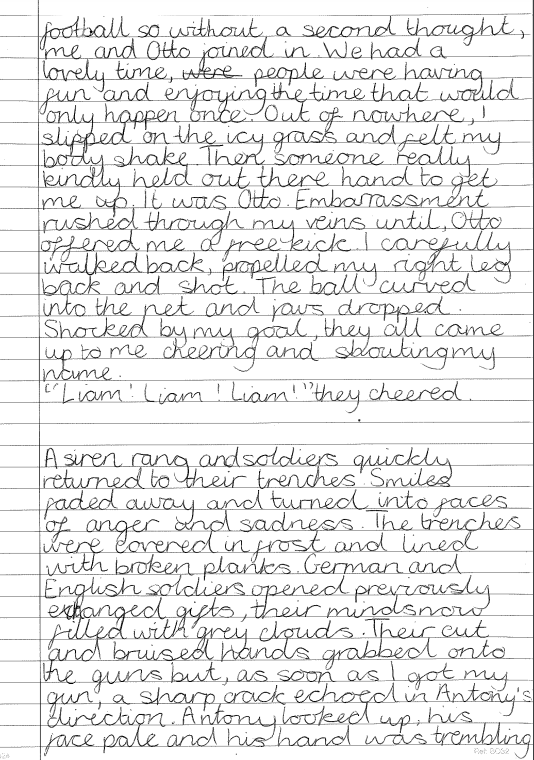 football so without a second thought,
me and Otto joined in. We had a
lovely time, were people were having
fun and enjoying the time that would
only happen once. Out of nowhere, I
slipped on the icy grass and felt my
body shake. Then someone really
kindly held out there hand to get
me up. It was Otto. Embarrassment
rushed through my veins until, Otto
offered me a free kick. I carefully
walked back, propelled my right leg
back and shot. The ball curved
into the net and jaws dropped.
Shocked by my goal, they all came
up to me cheering and shouting my
name.
"Liam! Liam! Liam!" they cheered.
A siren rang and soldiers quickly
returned to their trenches. Smiles
faded away and turned into faces
of anger and sadness. The trenches
were covered in frost and lined
with broken planks. German and
English soldiers opened previously
exchanged gifts, their minds now
filled with grey clouds. Their cut
and bruised hands grabbed onto
the guns but, as soon as I got my
gun, a sharp crack echoed in Antony's
direction. Antony looked up, his
face pale and his hand was trembling